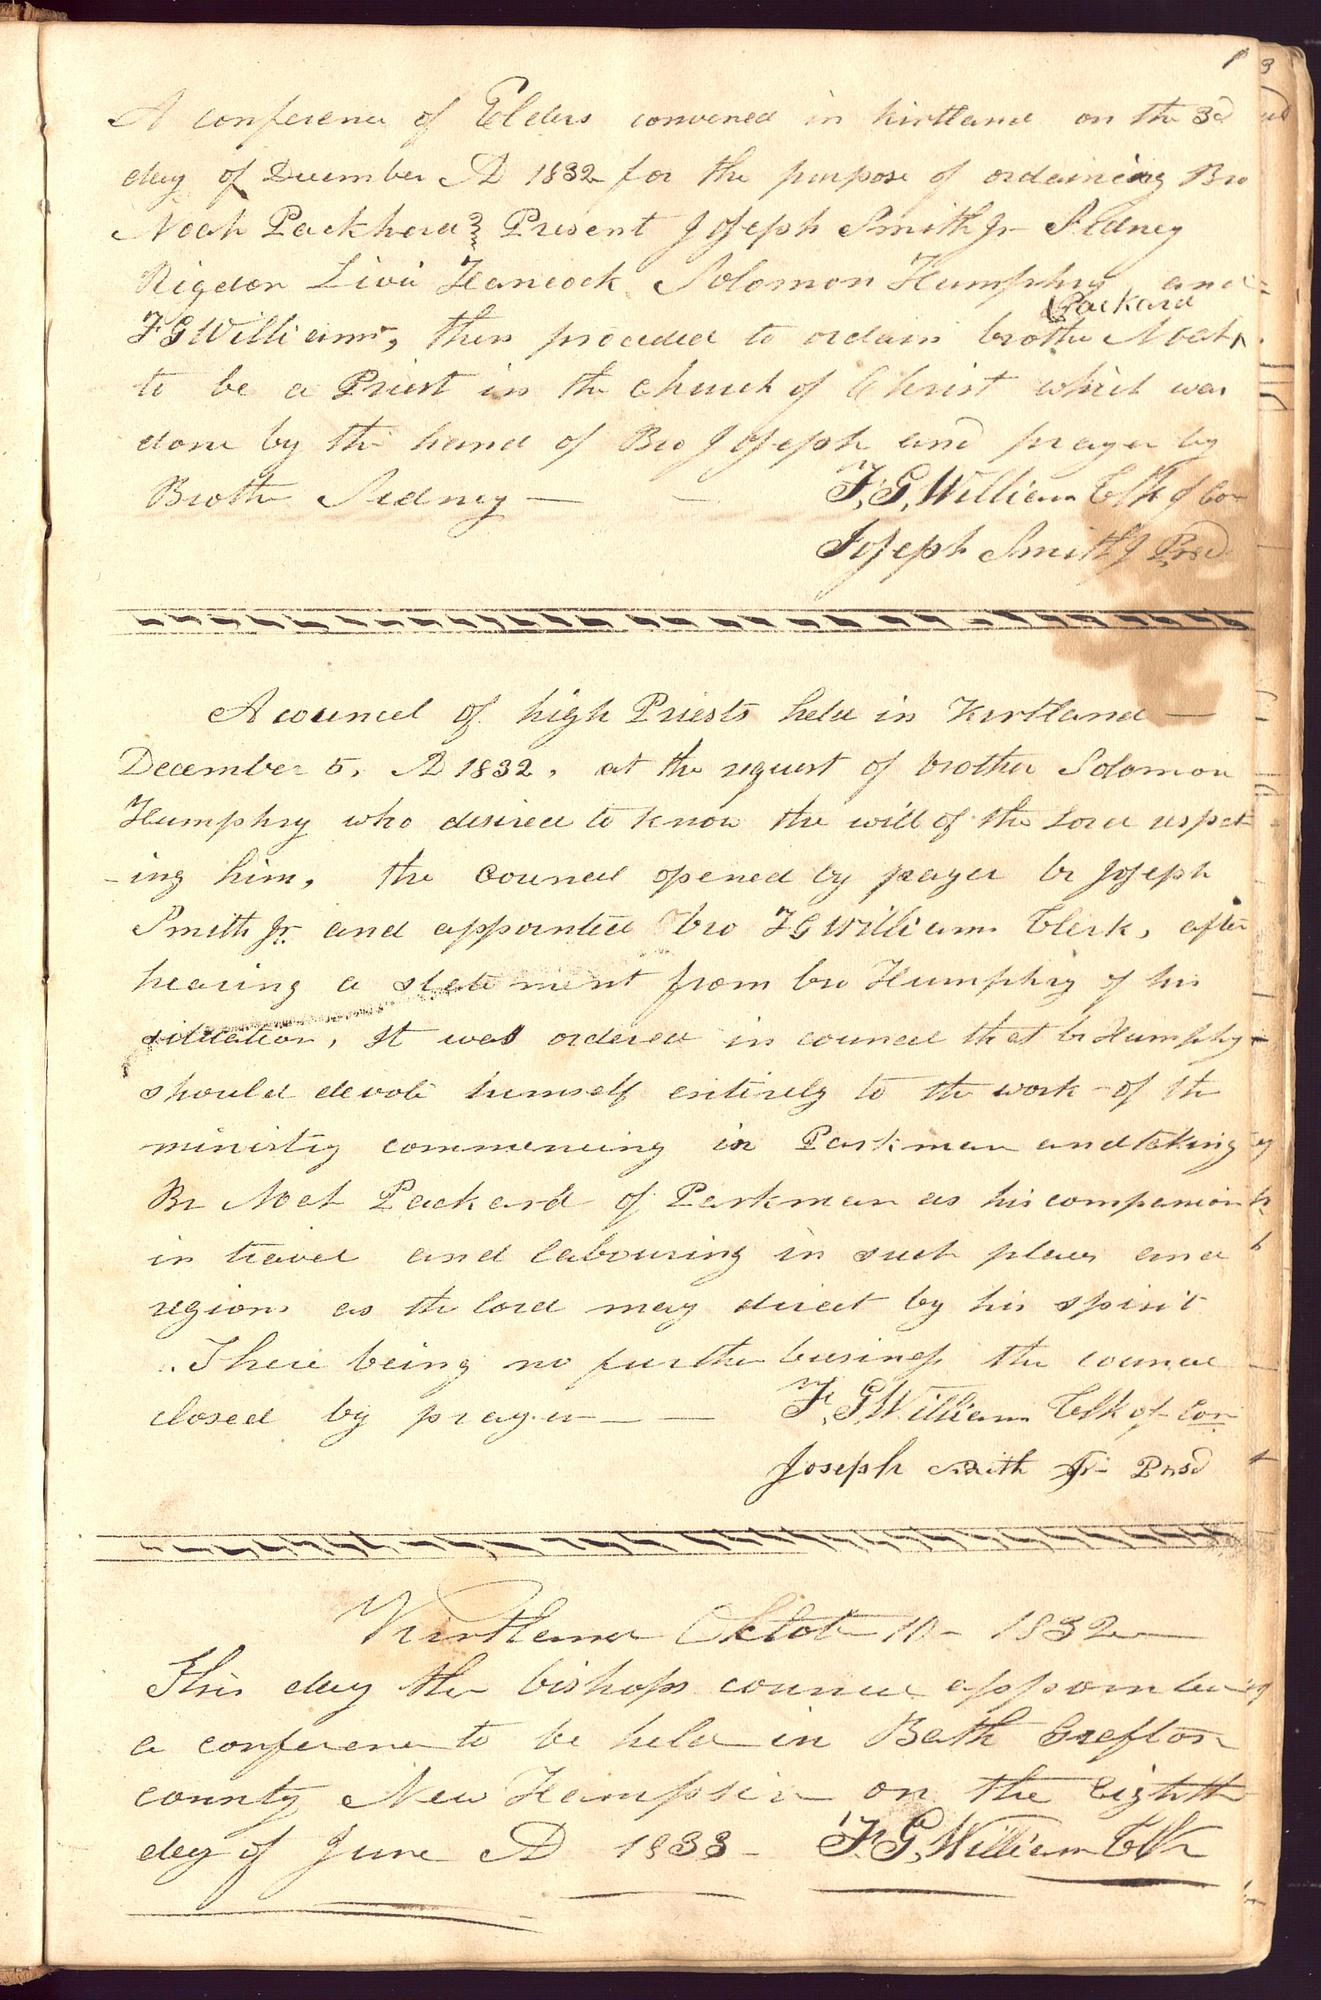 1
A conference of Elders convened in Kirtland on the 3d
day of December AD 1832 for the purpose of ordaining Bro
Noah Packherd Present Joseph Smith Jr Sidney
Rigdon Livi Hancock Solomon Humphry and
Packard
F G Williams, then proceded to ordain brothe Noah
to be a Priest in the church of Christ which was
done by the hand of Bro Joseph and prayer by
Brothe Sidney — — F, G, William Clk of Con
Joseph Smith J Presd
A councel of high Priests held in Kirtland —
December 5, AD 1832, at the request of brother Solomon
Humphry who desired to know the will of the Lord respect
-ing him, the Councel opened by prayer br Joseph
Smith Jr. and appointed bro F G Williams Clerk, after
hearing a statement from bro Humphry of his
situation, It was ordered in councel that br Humphry
should devote himself entirely to the work of the
ministry commencing in Parkman and taking
Br Noah Packard of Parkman as his companion
in travel and labouring in such places and
regions as the lord may direct by his spirit
. There being no further business the councel
closed by prayer — — F, G, William Clk of Con
Joseph Smith Jr Presd
Kirtland Octob 10 - 1832 —
This day the bishops councel appointed
a conference to be held in Bath Grafton
county New Hampsire on the Eighth
day of June AD 1833 - F. G, William Clk